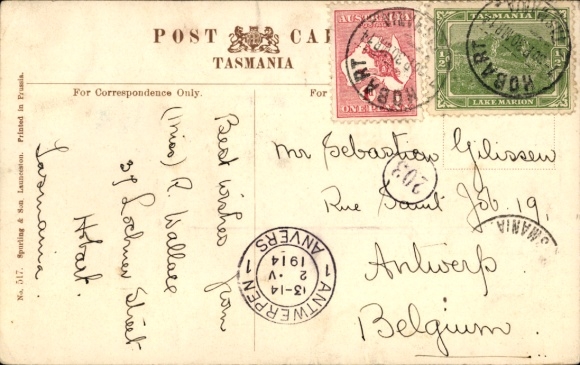 POST CA
TASMANIA
For Correspondence Only.
For
No. 517. Spurling & Son, Launceston. Printed in Prussia.
Best wishes from
(Miss) R. Wallace
37 Lochner Street
Hobart.
Tasmania.
Mr Sebastien Gilissen
Rue Saint Job. 19,
Antwerp.
Belgium.
203
ANTWERPEN 1
13-14
2 · V
1914
1 ANVERS
AUSTRALIA
ONE PENNY
HOBART
TASMANIA
½
½
LAKE MARION
HOBART
MANIA